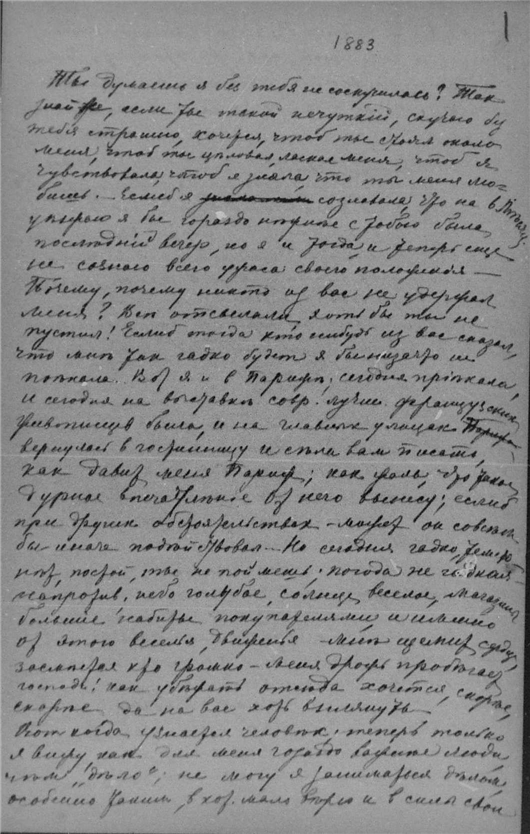 1
1883
Ты думаешь я без тебя не соскучилась? Так
знай же, если уже такой нечуткий, скучаю без
тебя страшно, хочется, чтоб ты стоял около
меня, чтоб ты целовал, ласкал меня, чтоб я
чувствовала, чтоб я знала, что ты меня лю-
бишь. – Еслиб я сознавала что на в
я бы гораздо с тобою была
последній вечер, но я и тогда, и теперь еще
не сознаю всего ужаса своего положенія –
Почему, почему никто из вас не удержал
меня? Все отсылали, хоть бы ты не
пустил! Еслиб тогда кто нибудь из вас сказал,
что мне так гадко будет я бы низачто не
поехала. Вот я и в Париже, сегодня пріехала,
и сегодня на выставке совр. лучш. французских
живописцев была, и на главных улицах
вернулась в гостинницу и села вам писать,
как давит меня Париж; как жаль, что такое
дурное впечатленіе от него вынесу; еслиб
при других обстоятельствах – может он совсем
бы иначе подействовал – Но сегодня гадко,
постой, ты не поймешь; погода не гадкая
напротив, небо голубое, солнце веселое, магазины
большіе набиты покупателями и именно
от этого веселья, движенья – мне щемит сердце,
засмеется кто громко – меня дрожь пробегает
господи! как убежать отсюда хочется, скорее,
скорее да на вас хоть взглянуть
Вот когда узнается человек; теперь только
я вижу как для меня гораздо важнее люди,
чем "дело"; не могу я заниматься делом,
особенно таким, в кот. мало верю и в силы свои